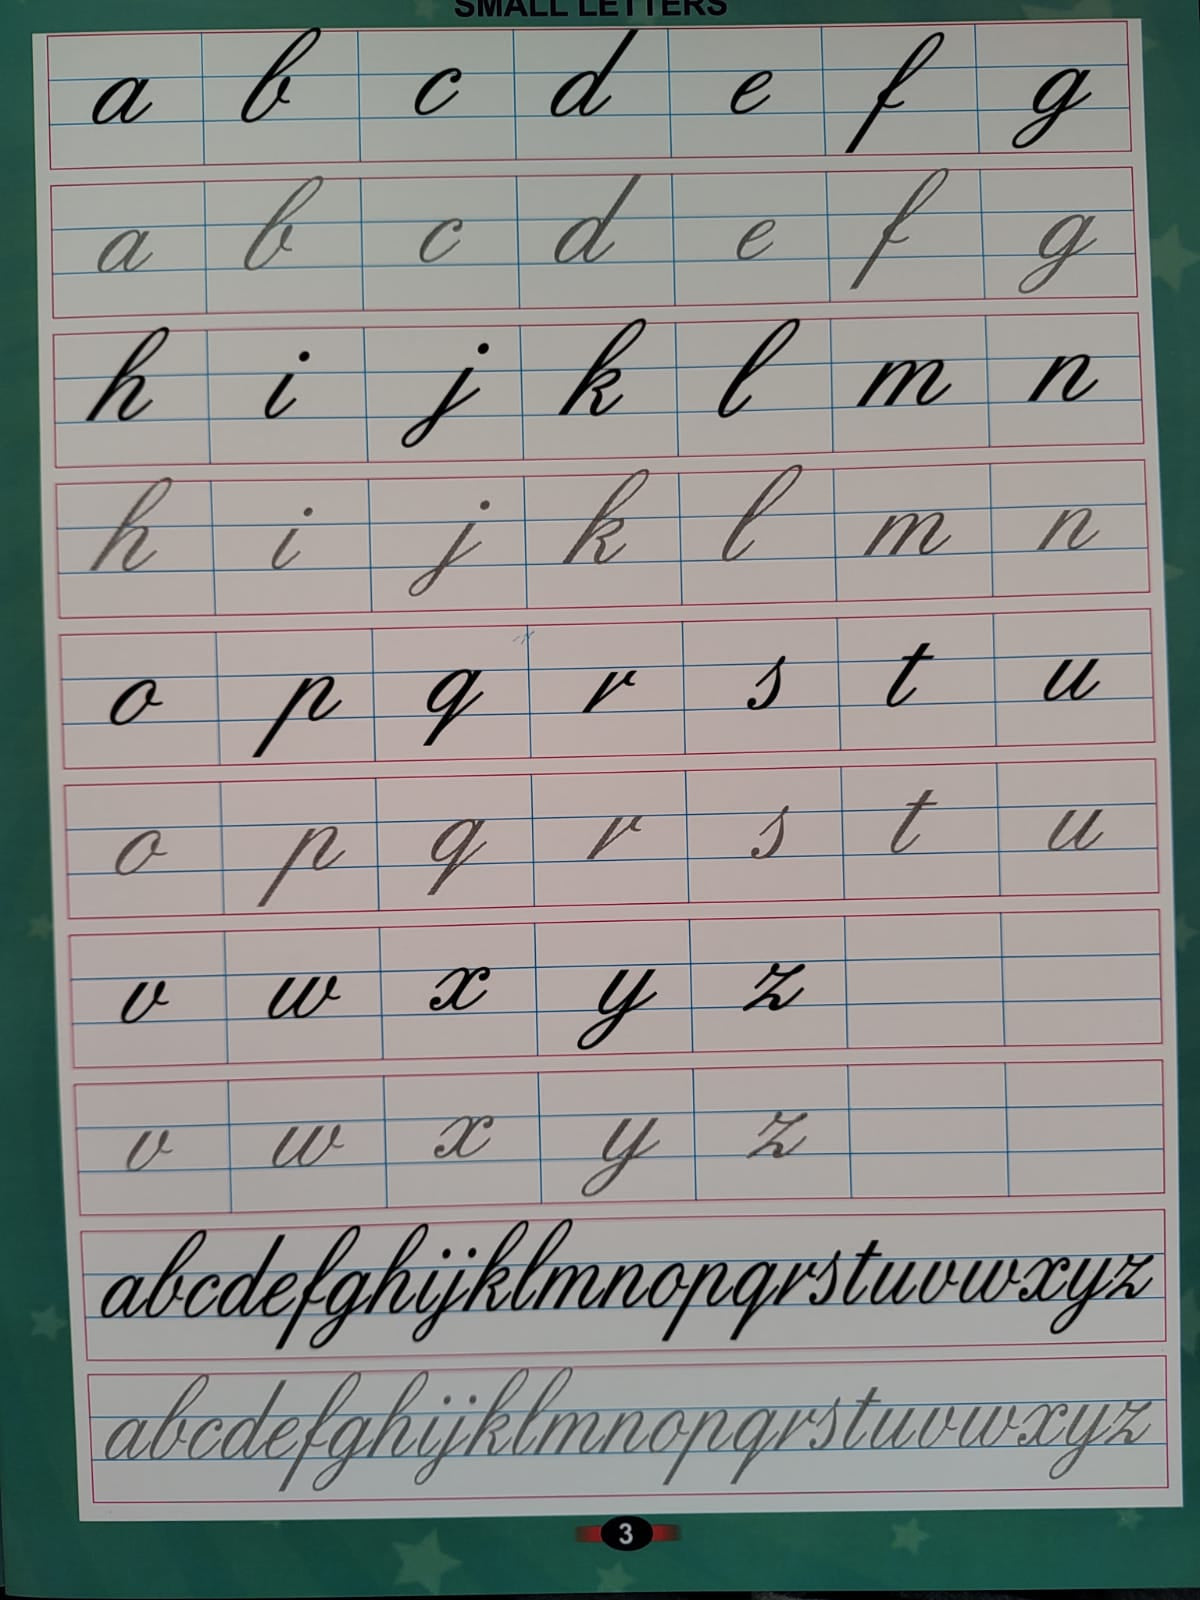 SMALL LETTERS
a b c d e f g
a b c d e f g
h i j k l m n
h i j k l m n
o p q r s t u
o p q r s t u
v w x y z
v w x y z
abcdefghijklmnopqrstuvwxyz
abcdefghijklmnopqrstuvwxyz
3